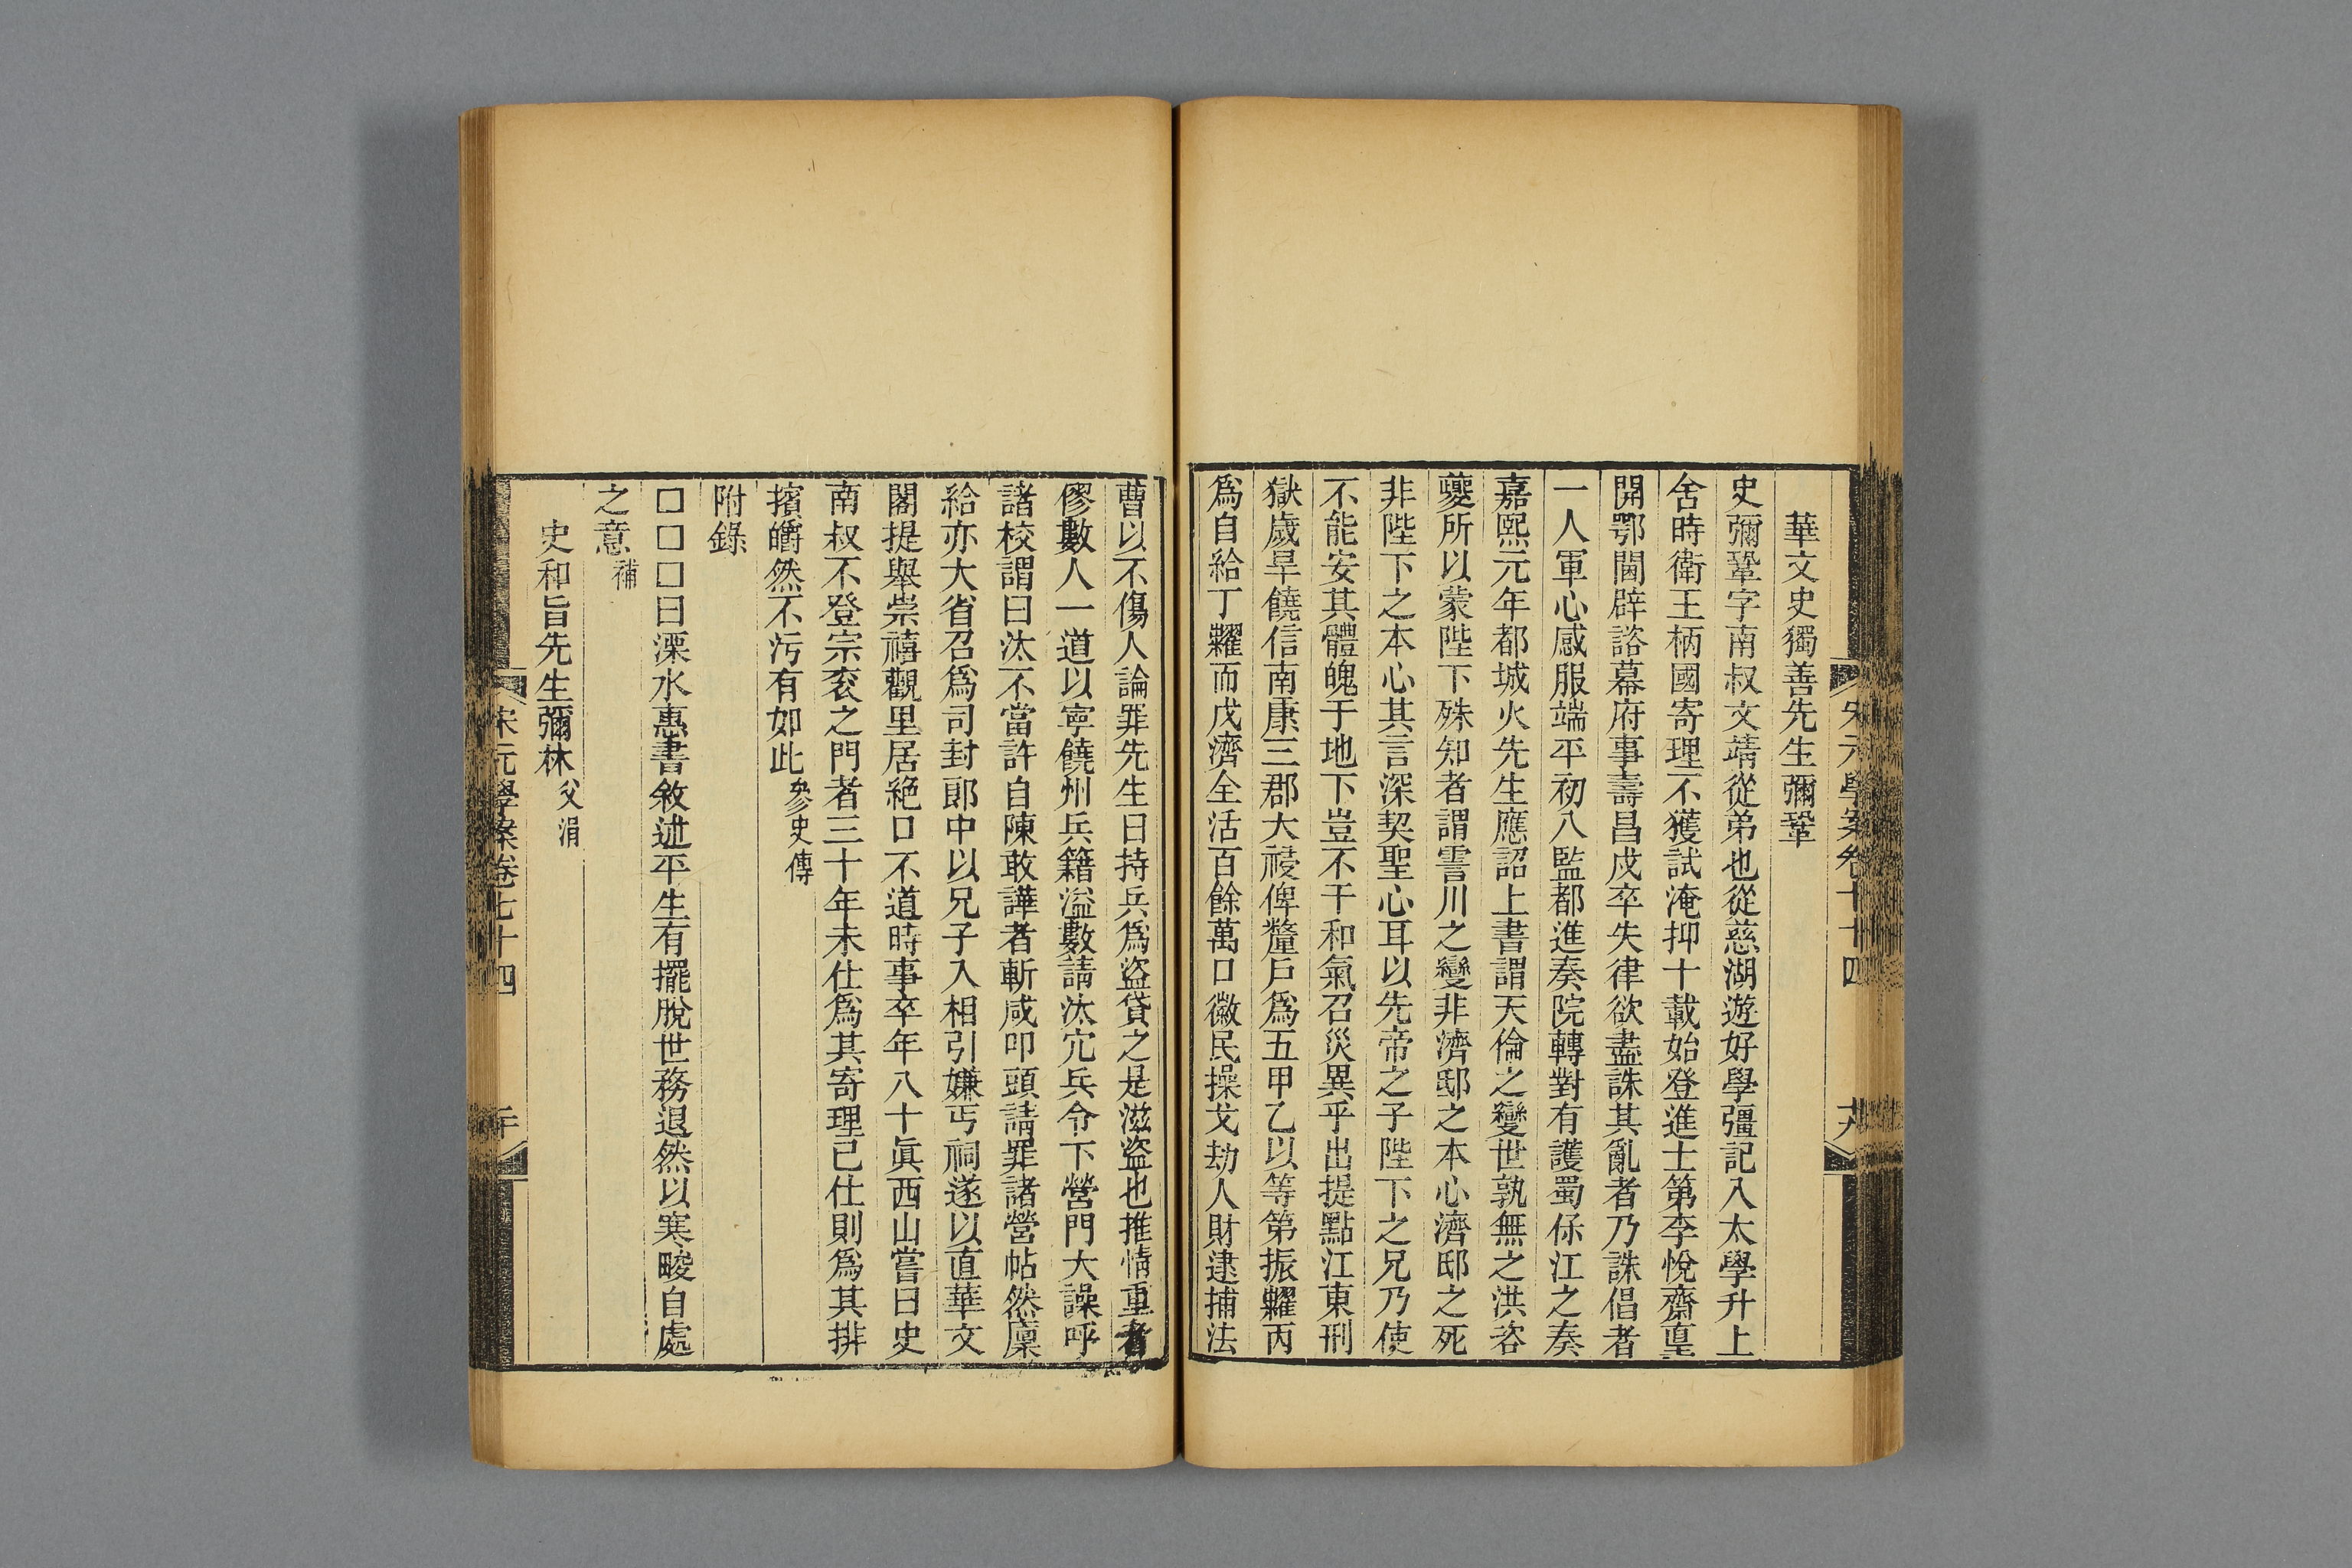 華文史獨善先生彌鞏
史彌鞏字南叔文靖從弟也從慈湖遊好學彊記入太學升上
舍時衛王柄國寄理不獲試淹抑十載始登進士第李悅齋𡌴
開鄂閫辟諮幕府事壽昌戍卒失律欲盡誅其亂者乃誅倡者
一人軍心感服端平初入監都進奏院轉對有護蜀保江之奏
嘉熙元年都城火先生應詔上書謂天倫之變世孰無之洪咨
夔所以蒙陛下殊知者謂霅川之變非濟邸之本心濟邸之死
非陛下之本心其言深契聖心耳以先帝之子陛下之兄乃使
不能安其體魄于地下豈不干和氣召災異乎出提點江東刑
獄歲旱饒信南康三郡大祲俾釐戶爲五甲乙以等第振糶丙
爲自給丁糶而戊濟全活百餘萬口徽民操戈劫人財逮捕法
曹以不傷人論罪先生曰持兵爲盜貸之是滋盜也推情重者
僇數人一道以寧饒州兵籍溢數請汰冗兵令下營門大譟呼
諸校謂曰汰不當許自陳敢譁者斬咸叩頭請罪諸營帖然廩
給亦大省召爲司封郎中以兄子入相引嫌丐祠遂以直華文
閣提舉崇禧觀里居絕口不道時事卒年八十眞西山嘗曰史
南叔不登宗袞之門者三十年未仕爲其寄理已仕則爲其排
擯皭然不污有如此參史傳
附錄
□□□曰溧水惠書敘述平生有擺脫世務退然以寒畯自處
之意補
史和旨先生彌林父涓
宋元學案卷七十四